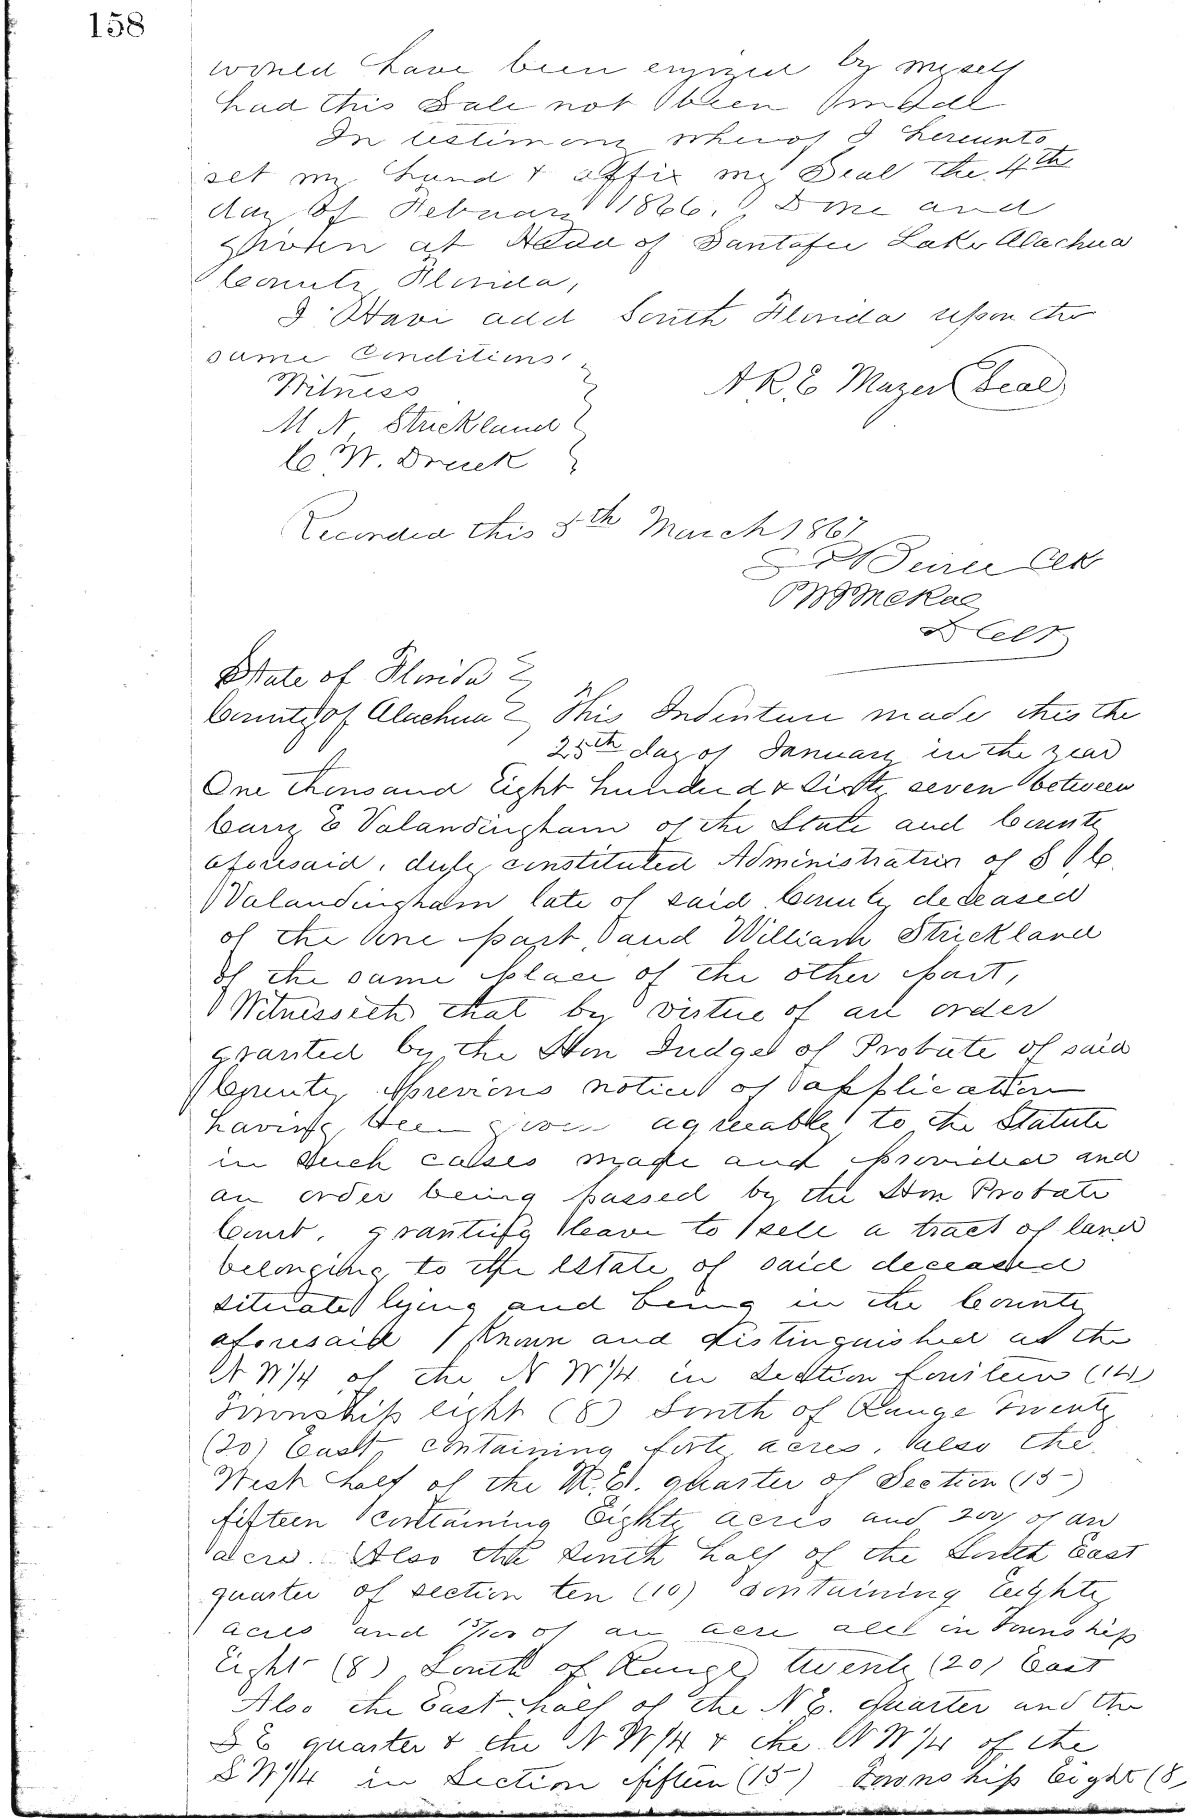 158
would have been enjoyed by myself
had this Sale not been made
In testimony whereof I hereunto
set my hand & affix my Seal the 4th
day of February 1866. Done and
given at Head of Santafee Lake Alachua
County Florida,
I Have add South Florida upon the
same Conditions
Witness
A R. E Mazer (Seal)
M N Strickland
C W. Drück
Recorded this 5th March 1867
Clk
McRae
D Clk
State of Florida
County of Alachua This Indenture made this the
25th day of January in the year
One thousand Eight hundred & Sixty seven between
Carry E Valandingham of the State and County
aforesaid, duly constituted Administratrix of S C.
Valandingham late of said County deceased
of the one part, and William Strickland
of the same place of the other part,
Witnesseth that by virtue of an order
granted by the Hon Judge of Probate of said
County previous notice of application
having been given agreeable to the Statute
in such cases made and provided and
an order being passed by the Hon Probate
Court, granting leave to sell a tract of land
belonging to the Estate of said deceased
situate lying and being in the County
aforesaid Known and distinguished as the
N W 1/4 of the N W 1/4 in Section fourteen (14)
Township eight (8) South of Range Twenty
(20) East, containing forty acres, also the
West half of the N. E. quarter of Section (15)
fifteen containing Eighty acres and of an
acre. Also the South half of the South East
quarter of section ten (10) containing Eighty
acres and of an acre all in Township
Eight (8) South of Range twenty (20) East
Also the East half of the N E. quarter and the
S E quarter & the N W 1/4 & the N W 1/4 of the
S W 1/4 in Section fifteen (15) Township Eight (8